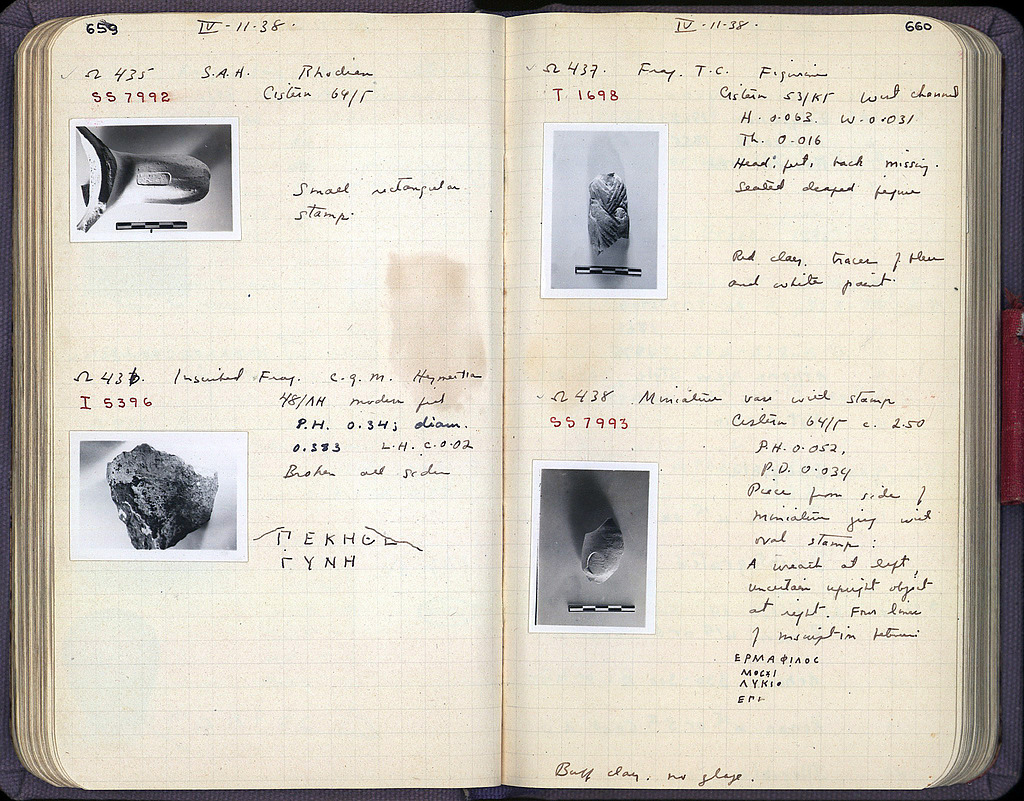 659
IV-11-38.
Ω 435 S.A.H. Rhodian
SS 7992 Cistern 64/Γ
Small rectangular
stamp.
Ω 436. Inscribed Frag. c.g.m. Hymettian
I 5396 48/ΛΗ modern fill
P.H. 0.34; diam.
0.383 L.H. c.0.02
Broken all sides
ΓΕΚΗΘΕ
ΓΥΝΗ
IV-11-38.
660
Ω 437. Frag. T.C. Figurine
T 1698 Cistern 53/ΚΓ West channel
H. 0.063. W. 0.031
Th. 0.016
Head, feet, back missing.
Seated draped figure
Red clay. traces of blue
and white paint.
Ω 438 Miniature vase with stamp
SS 7993 Cistern 64/Γ c. 2.50
P.H. 0.052,
P.D. 0.034
Piece from side of
miniature jug with
oval stamp:
A wreath at left,
uncertain upright object
at right. Four lines
of inscription between:
ΕΡΜΑΦΙΛΟC
ΜΟCΧΙ
ΛΥΚΙΟ
ΕΠΙ
Buff clay. no glaze.